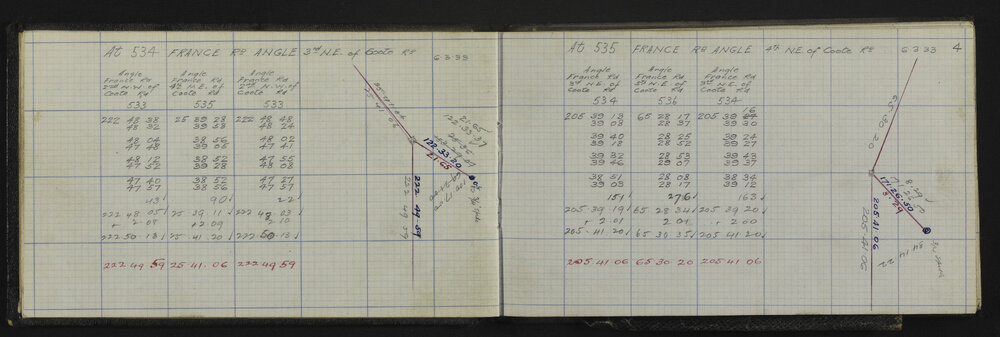 At 534 FRANCE RD ANGLE 3rd N.E. of Coote Rd 6 3 33
Angle Angle Angle
France Rd France Rd France Rd
2nd N.W. of 4th N.E. of 2nd N.W. of
Coote Rd Coote Rd Coote Rd
533 535 533
222 48 38 25 39 28 222 48 48
48 32 39 38 48 24
48 04 38 56 48 02
47 48 39 06 47 41
48 12 38 52 47 55
47 52 39 28 48 08
47 40 38 52 47 27
47 57 38 56 47 57
43 90 22
222 48 05 25 39 11 222 48 03
+ 2 08 + 2 09 2 10
222 50 13 25 41 20 222 50 13
222 49 59 25 41 06 222 49 59
25 41 06
122 33 20
21.65
222 49 59
222 49 59
At 535 FRANCE RD ANGLE 4th N.E. of Coote Rd 6 3 33 4
Angle Angle Angle
France Rd France Rd France Rd
3rd N.E. of 5th N.E. of 3rd N.E. of
Coote Rd Coote Rd Coote Rd
534 536 534
16
205 39 13 65 28 17 205 39
39 08 28 37 39 30
39 40 28 25 39 24
39 18 28 52 39 27
39 32 28 53 39 43
39 46 29 07 39 37
38 51 28 08 38 34
39 03 28 17 39 12
151 276 163
205 39 19 65 28 34 205 39 20
+ 2 01 2 01 + 2 00
205 41 20 65 30 35 205 41 20
205 41 06 65 30 20 205 41 06
65 30 20
171 26 50
8.29
205 41 06
205 41 06